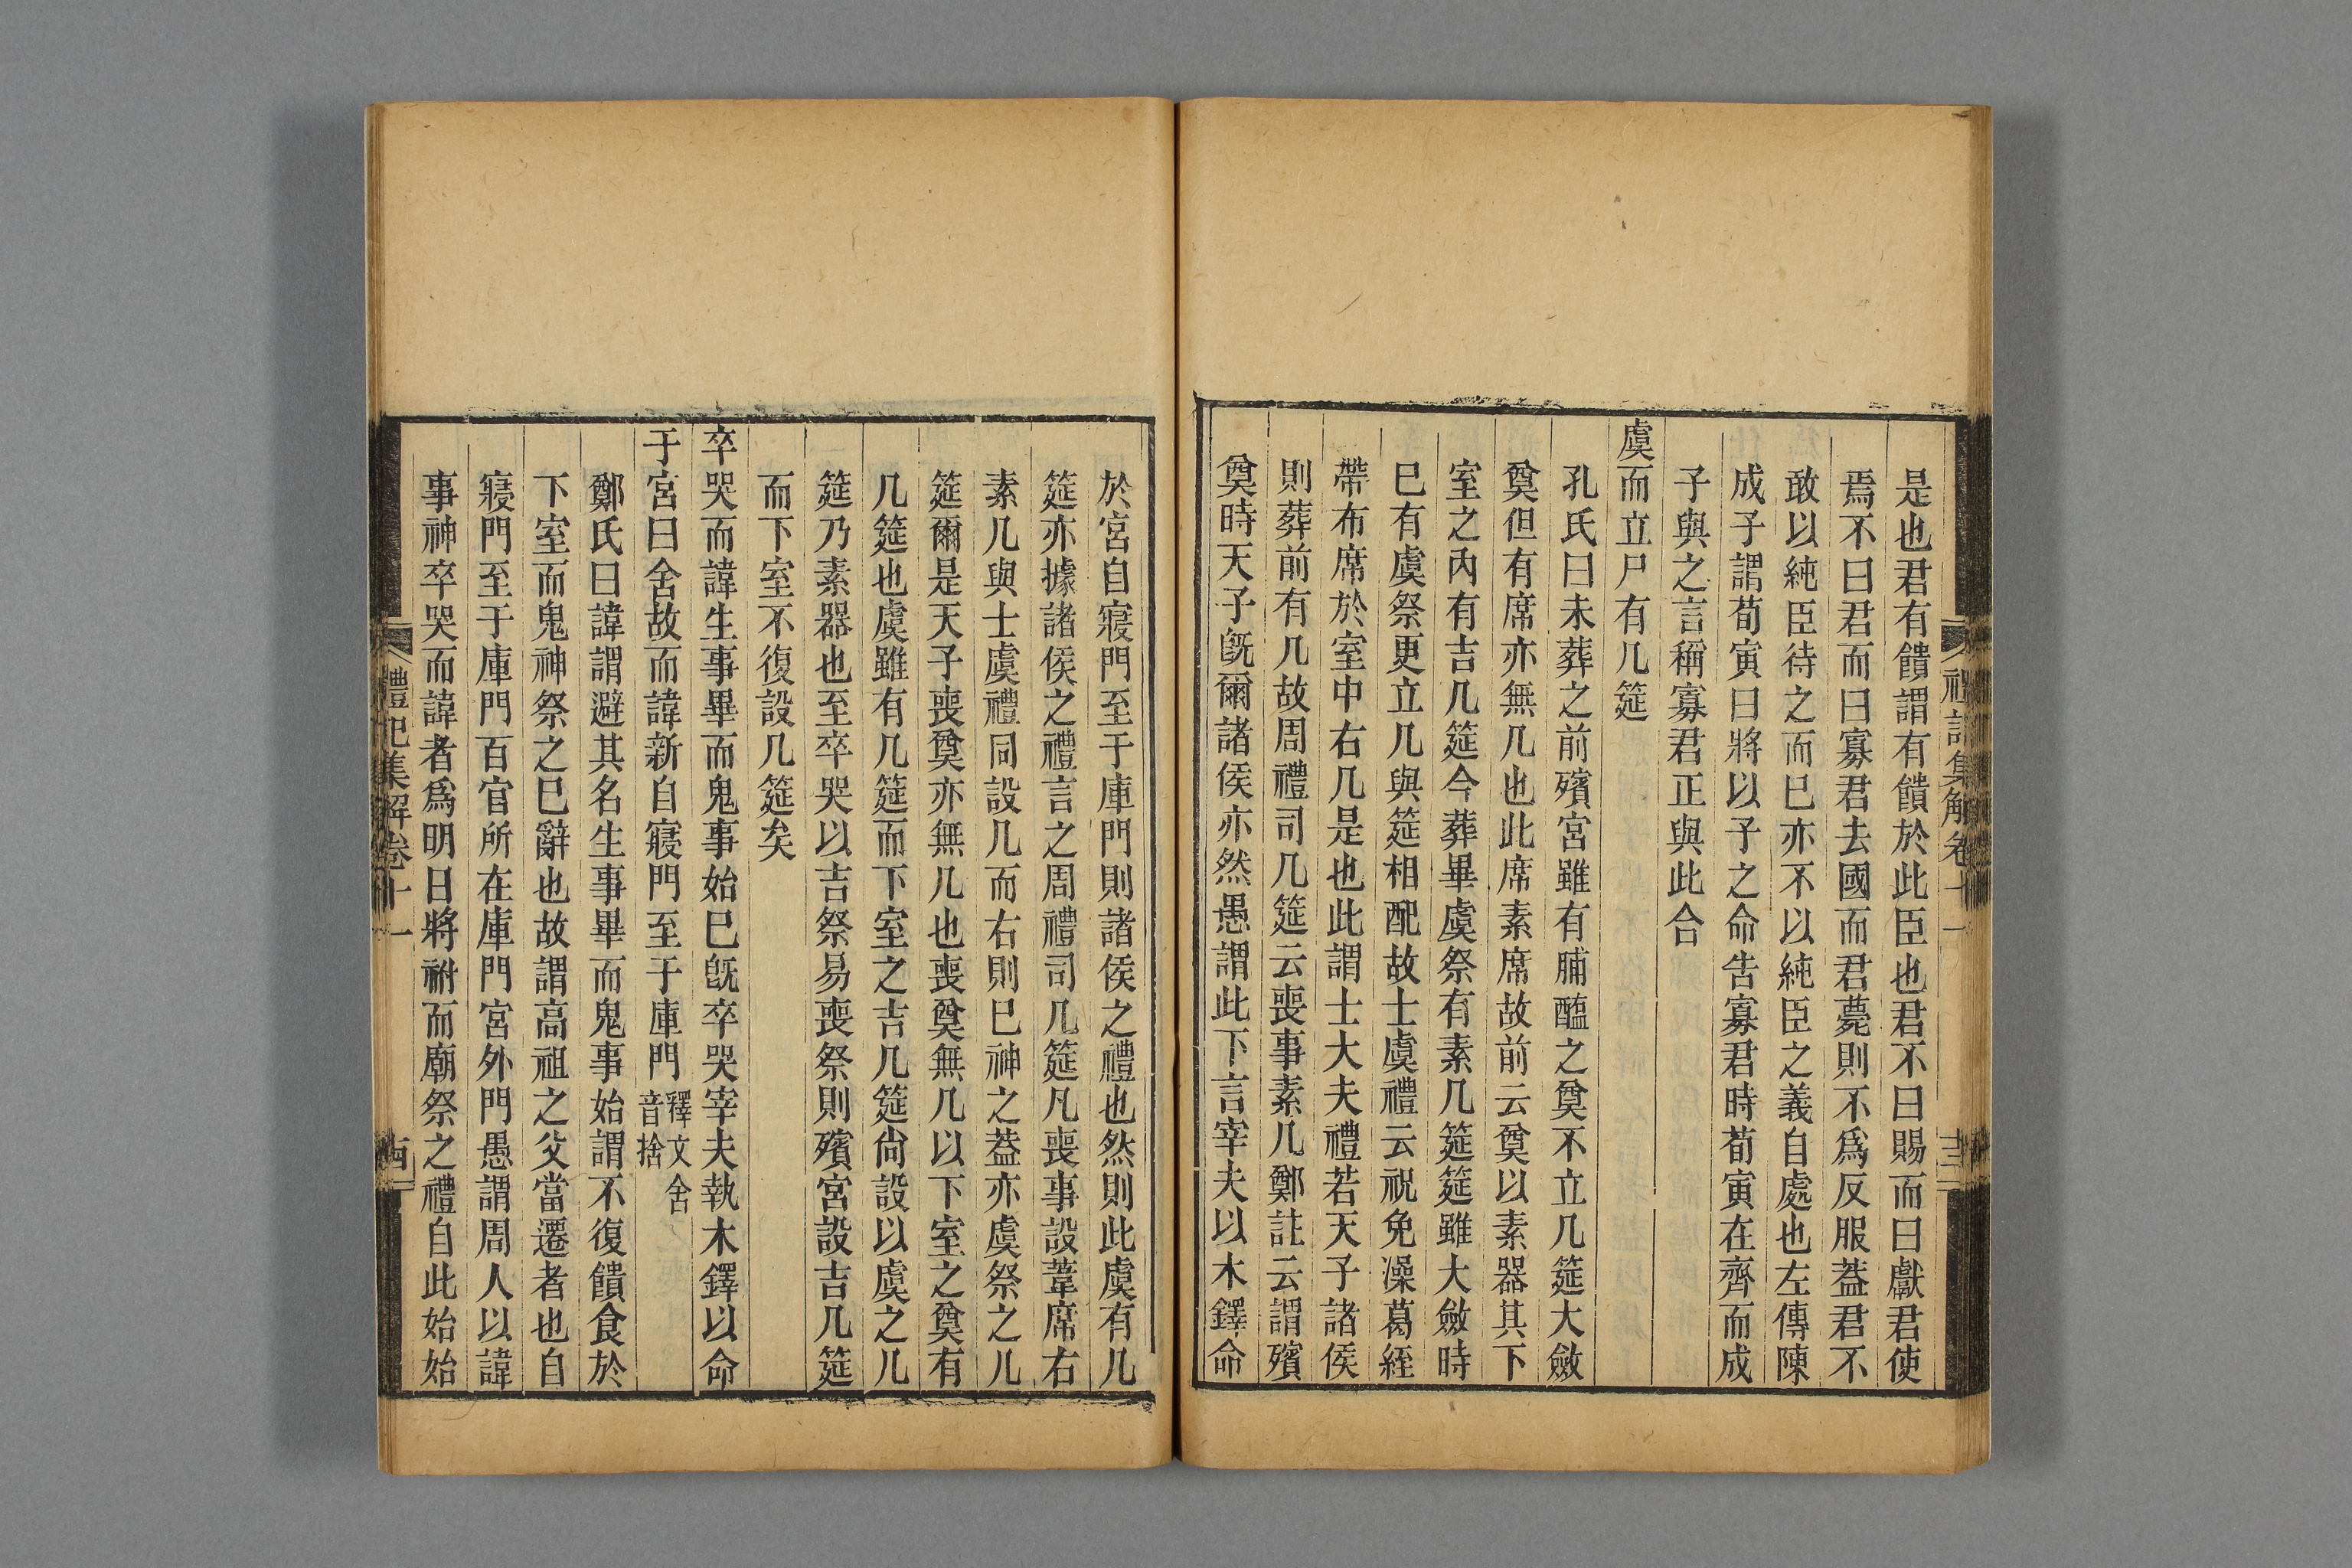 是也君有饋謂有饋於此臣也君不曰賜而曰獻君使
焉不曰君而曰寡君去國而君薨則不爲反服葢君不
敢以純臣待之而巳亦不以純臣之義自處也左傳陳
成子謂荀寅曰將以子之命告寡君時荀寅在齊而成
子與之言稱寡君正與此合
虞而立尸有几筵
孔氏曰未葬之前殯宮雖有脯醢之奠不立几筵大斂
奠但有席亦無几也此席素席故前云奠以素器其下
室之內有吉几筵今葬畢虞祭有素几筵筵雖大斂時
巳有虞祭更立几與筵相配故士虞禮云祝免澡葛絰
帶布席於室中右几是也此謂士大夫禮若天子諸侯
則葬前有几故周禮司几筵云喪事素几鄭註云謂殯
奠時天子旣爾諸侯亦然愚謂此下言宰夫以木鐸命
禮記集解卷十一
於宮自寢門至于庫門則諸侯之禮也然則此虞有几
筵亦據諸侯之禮言之周禮司几筵凡喪事設葦席右
素几與士虞禮同設几而右則巳神之葢亦虞祭之几
筵爾是天子喪奠亦無几也喪奠無几以下室之奠有
几筵也虞雖有几筵而下室之吉几筵尙設以虞之几
筵乃素器也至卒哭以吉祭易喪祭則殯宮設吉几筵
而下室不復設几筵矣
卒哭而諱生事畢而鬼事始巳旣卒哭宰夫執木鐸以命
于宮曰舍故而諱新自寢門至于庫門釋文舍音捨
鄭氏曰諱謂避其名生事畢而鬼事始謂不復饋食於
下室而鬼神祭之巳辭也故謂高祖之父當遷者也自
寢門至于庫門百官所在庫門宮外門愚謂周人以諱
事神卒哭而諱者爲明日將祔而廟祭之禮自此始始
禮記集解卷十一